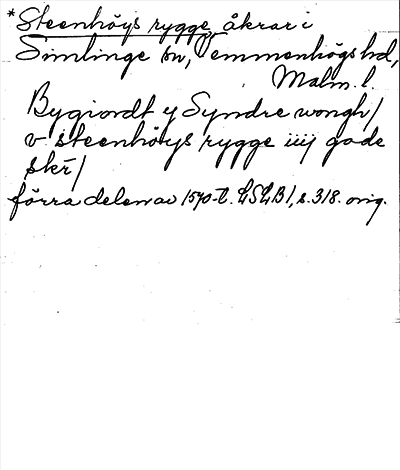 *Steenhöys rygge, åkrar i
Simlinge sn, Vemmenhögs hd,
Malm. l.
Bygiordt y Syndre wongh/
v steenhöys rygge iiij gode
skr̄/
förra delen av 1570-t. LSLB1, s. 318. orig.